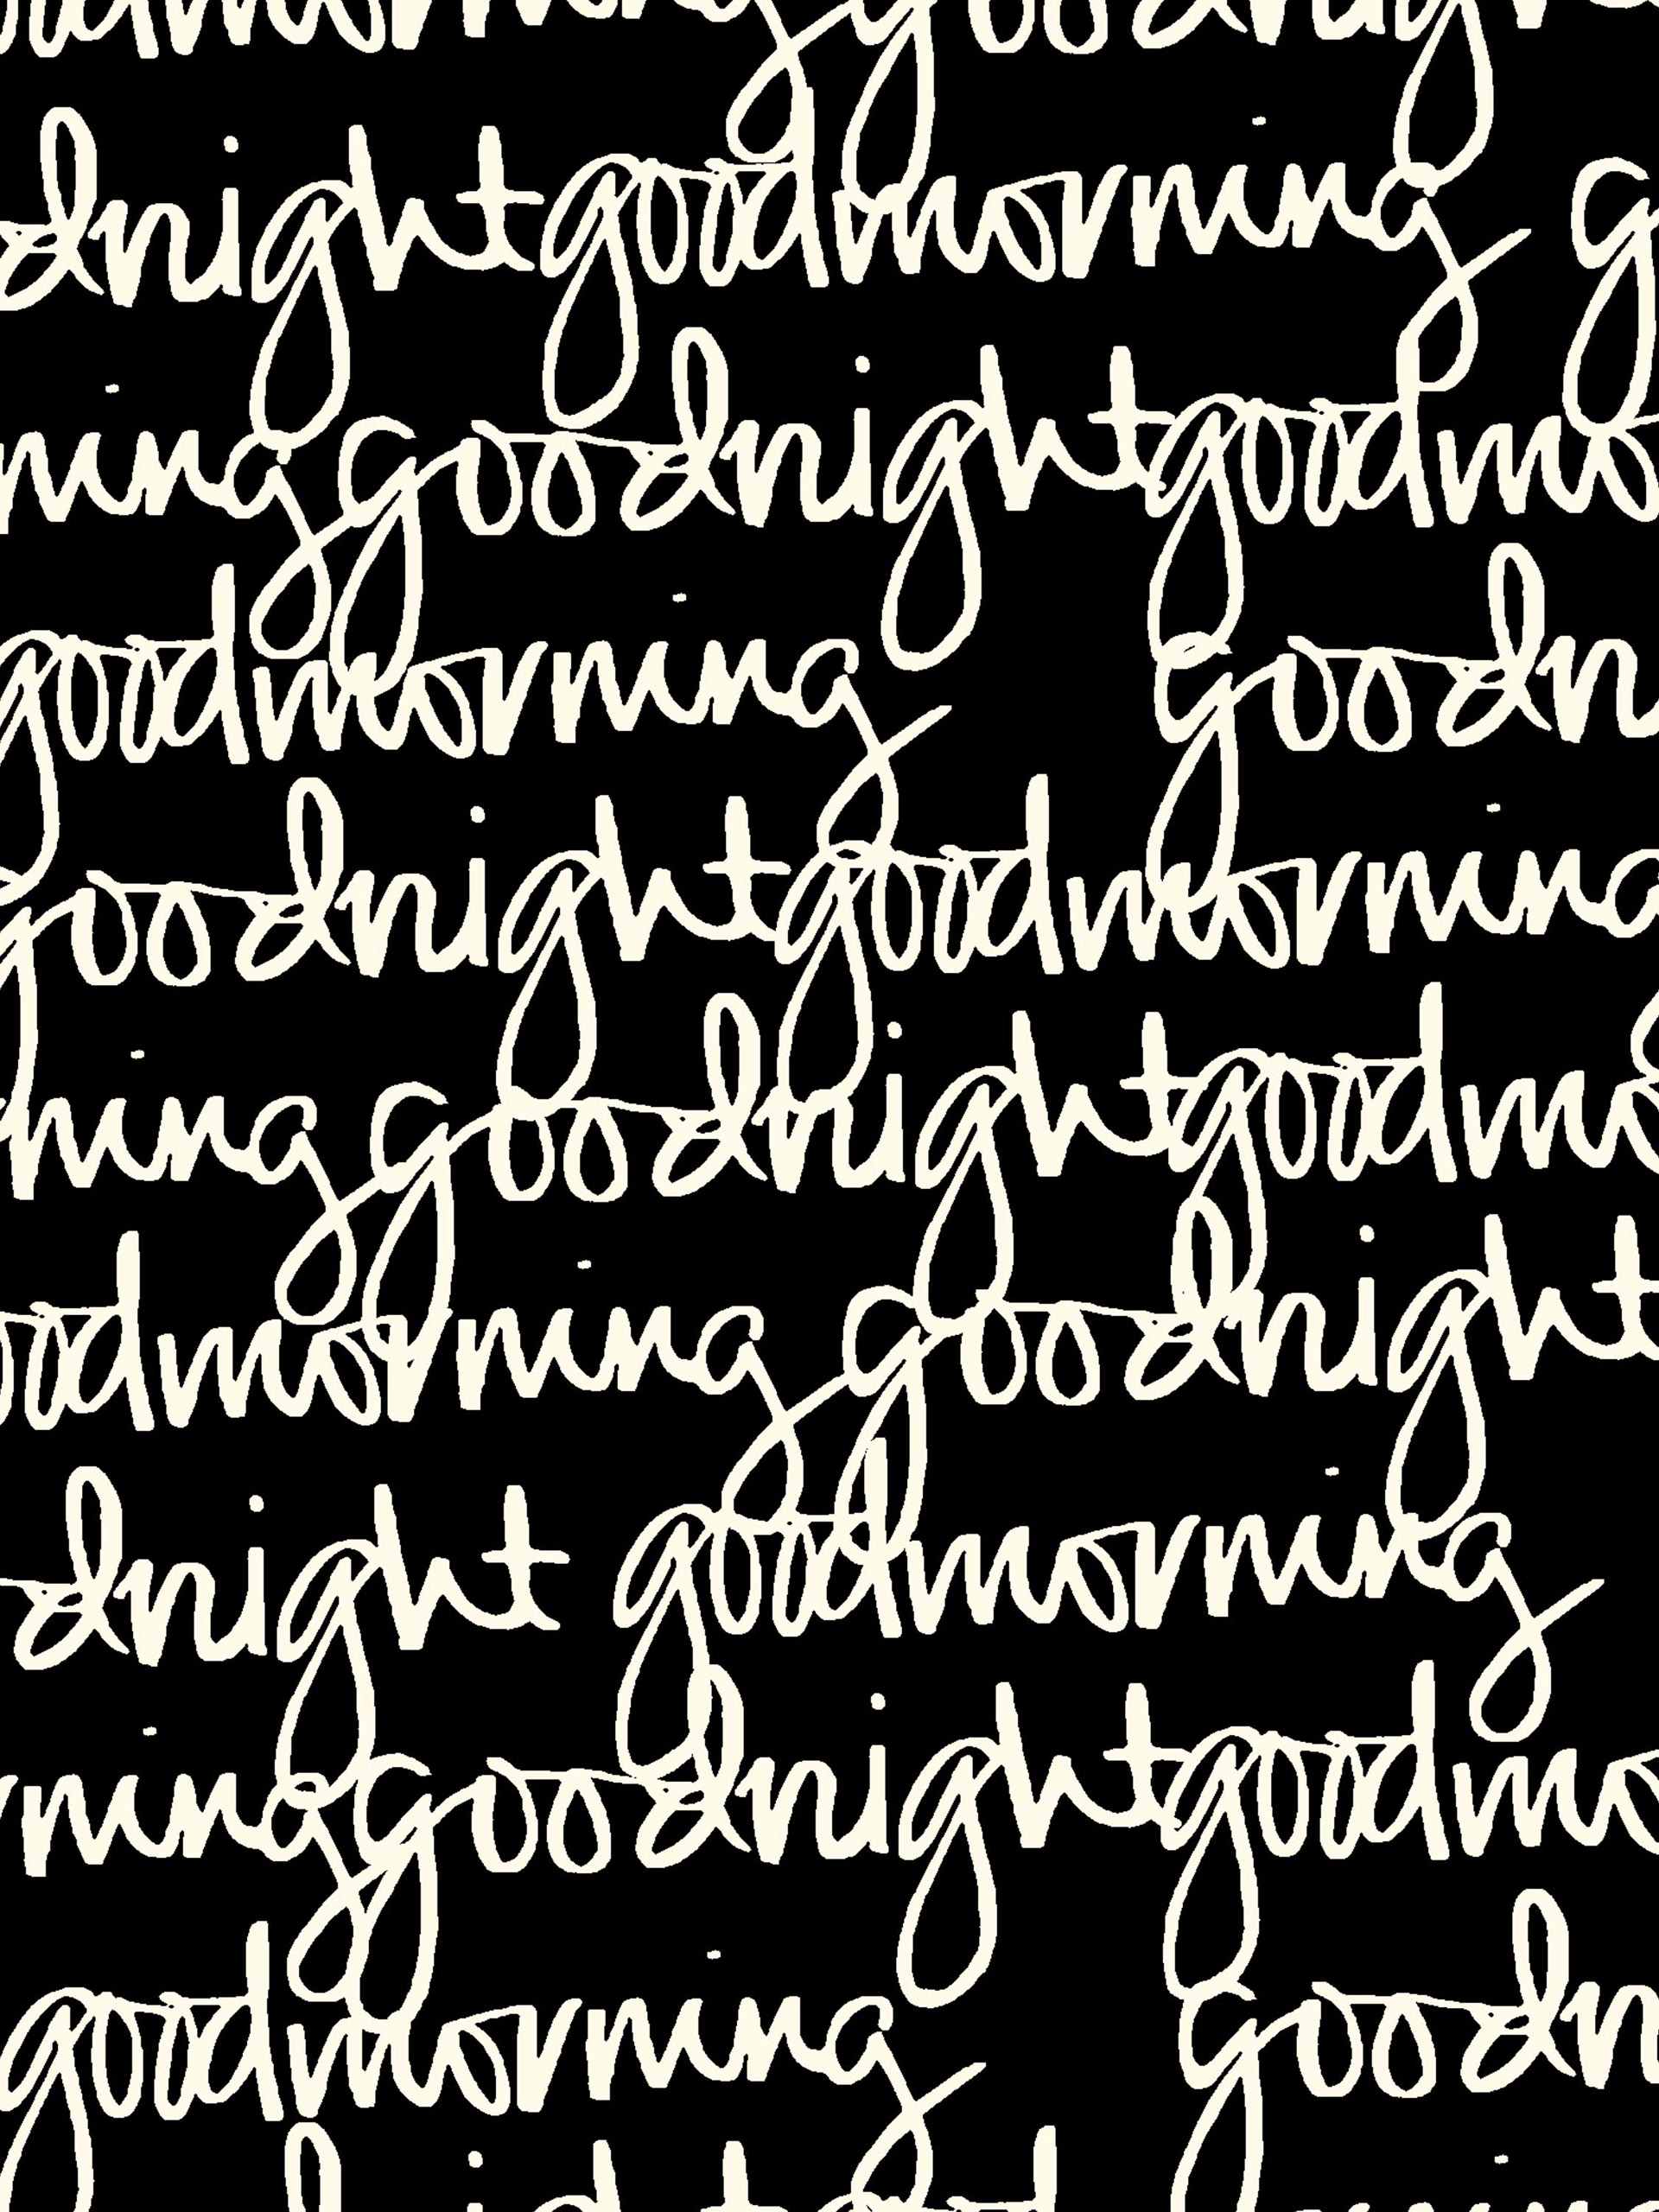 dnight goodmorning g
ming goodnight goodmo
goodmorning goodn
goodnight goodmorning
ning goodnight goodmo
odmorning goodnight
dnight goodmorning
rning goodnight goodmo
goodmorning goodn